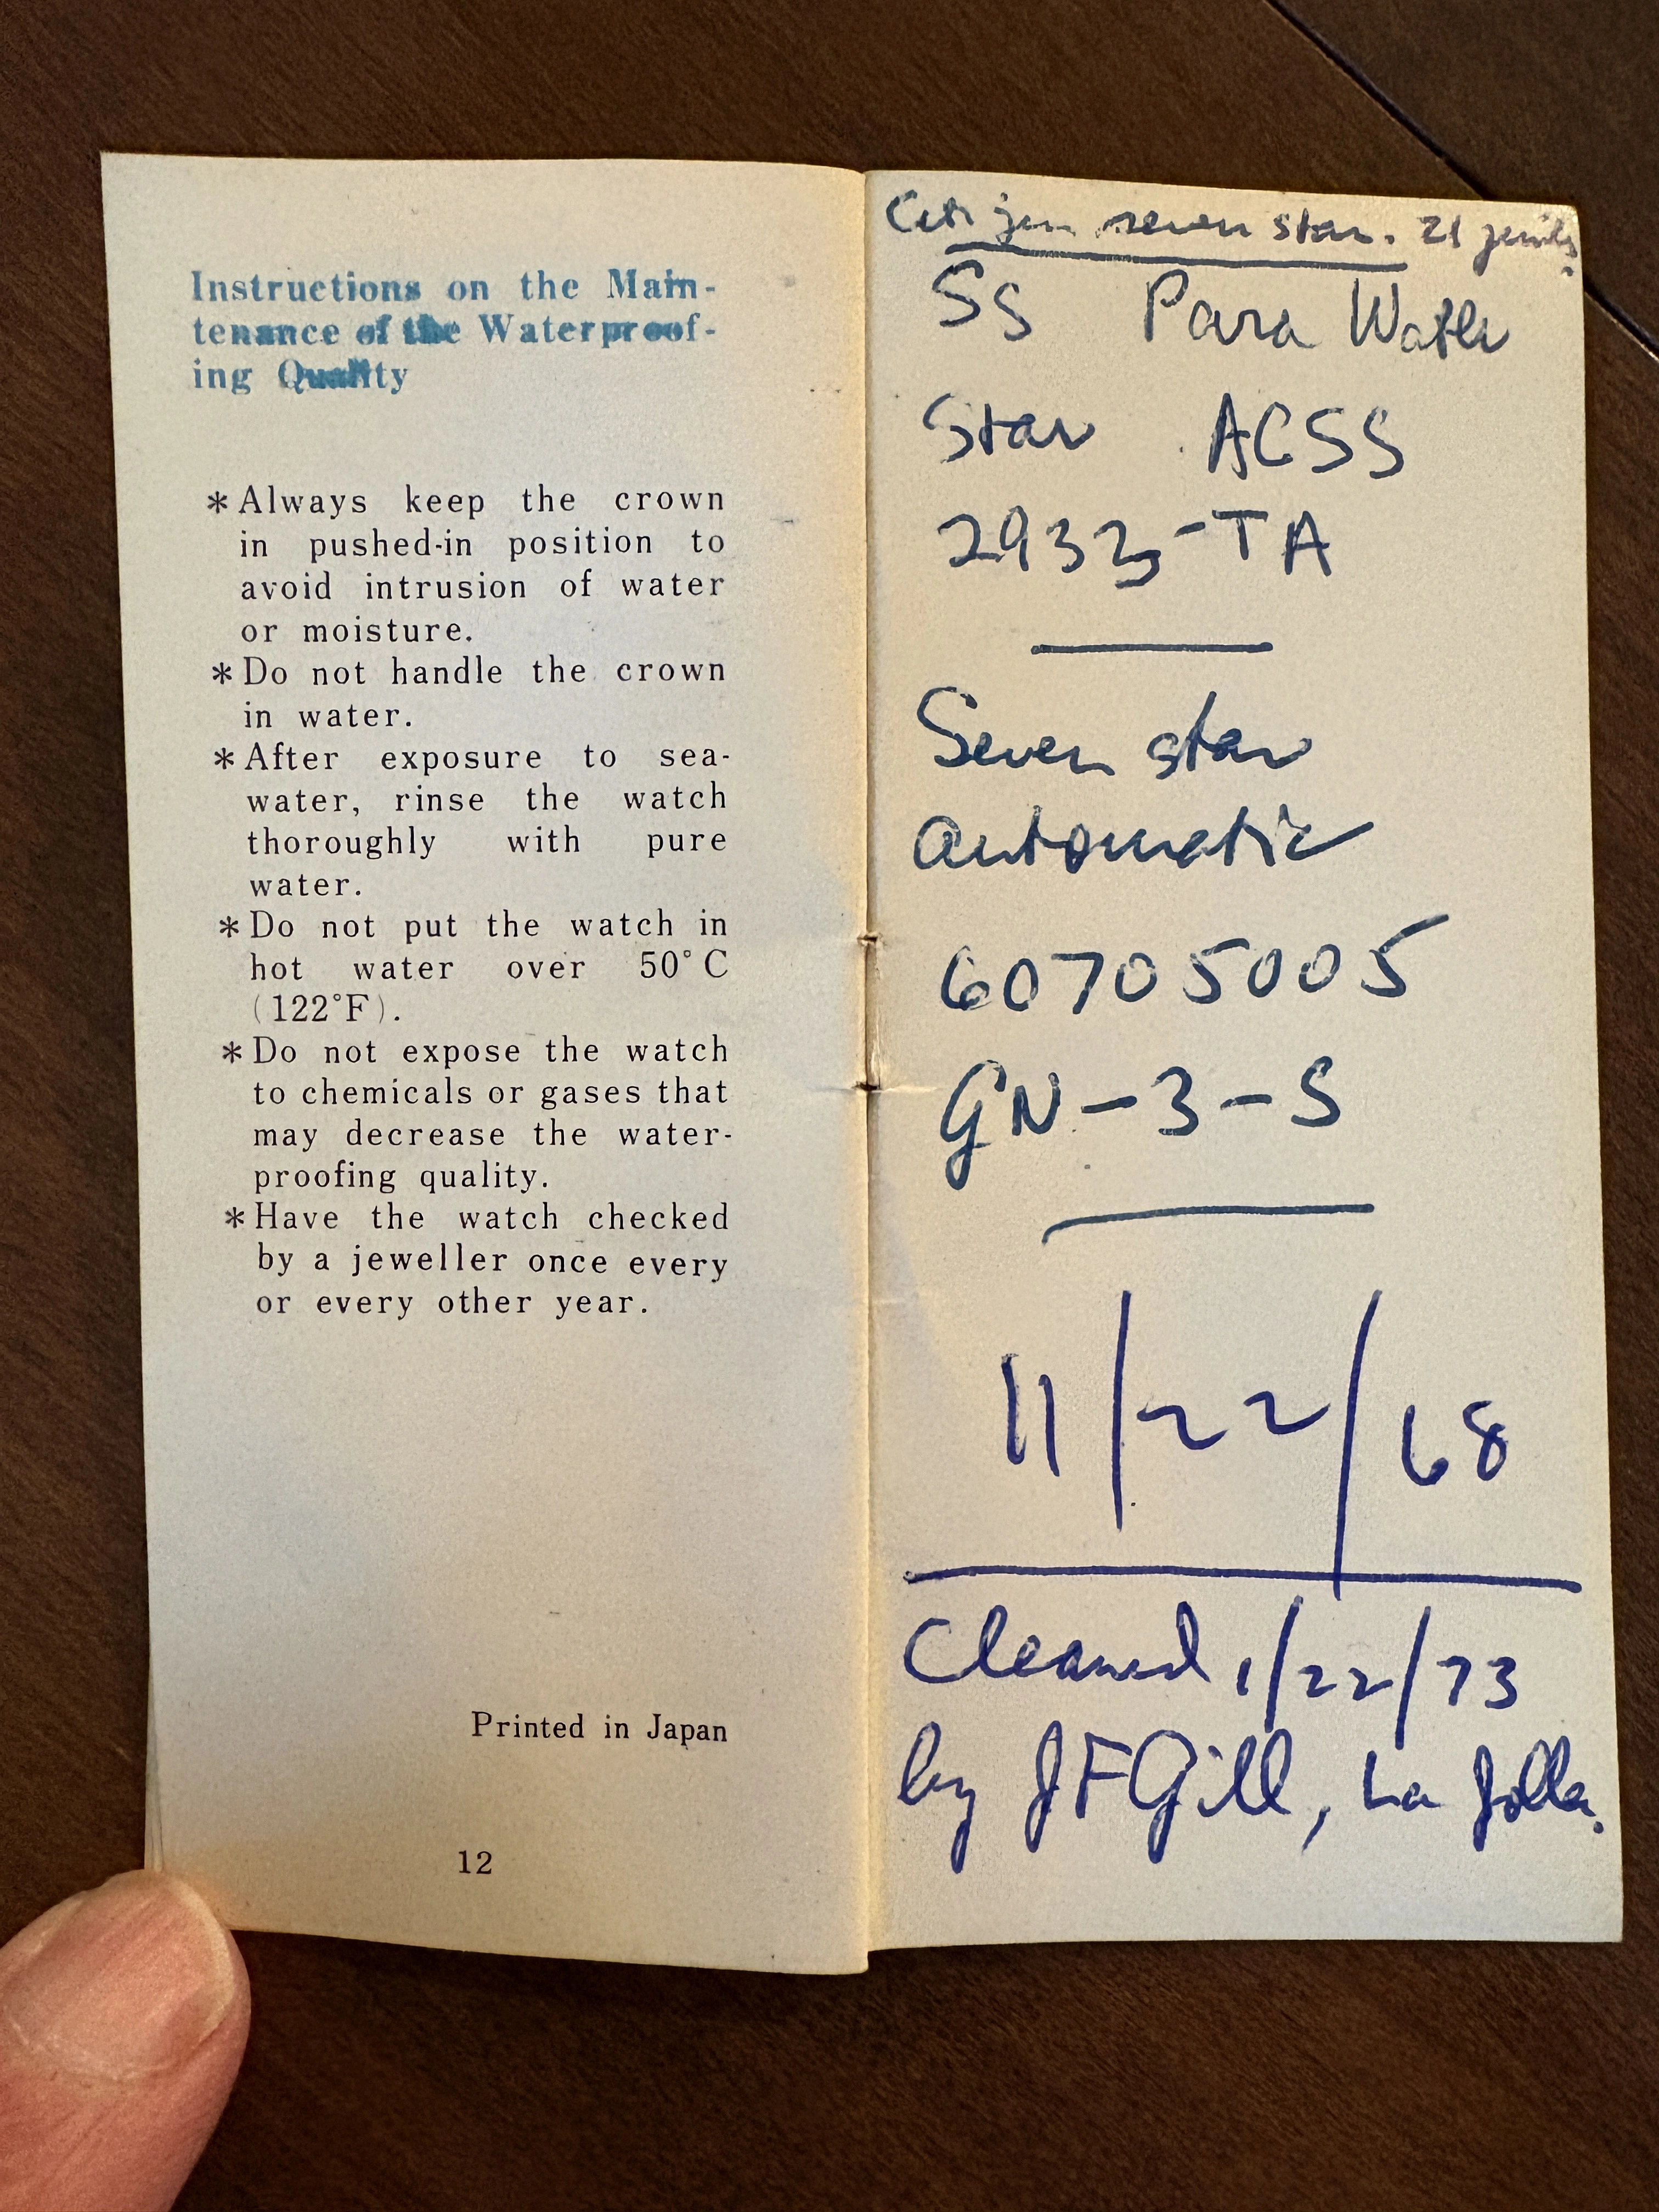 Instructions on the Main-
tenance of the Waterproof-
ing Quality
*Always keep the crown
in pushed-in position to
avoid intrusion of water
or moisture.
*Do not handle the crown
in water.
*After exposure to sea-
water, rinse the watch
thoroughly with pure
water.
*Do not put the watch in
hot water over 50°C
(122°F).
*Do not expose the watch
to chemicals or gases that
may decrease the water-
proofing quality.
*Have the watch checked
by a jeweller once every
or every other year.
Printed in Japan
12
Citizen seven star. 21 jewels
SS Para Water
Star ACSS
2933-TA
Seven star
automatic
60705005
GN-3-S
11/22/68
Cleaned 1/22/73
by JFGill, La Jolla.